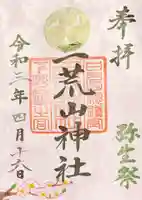 奉拝
弥生祭
二荒山神社
令和三年四月十六日